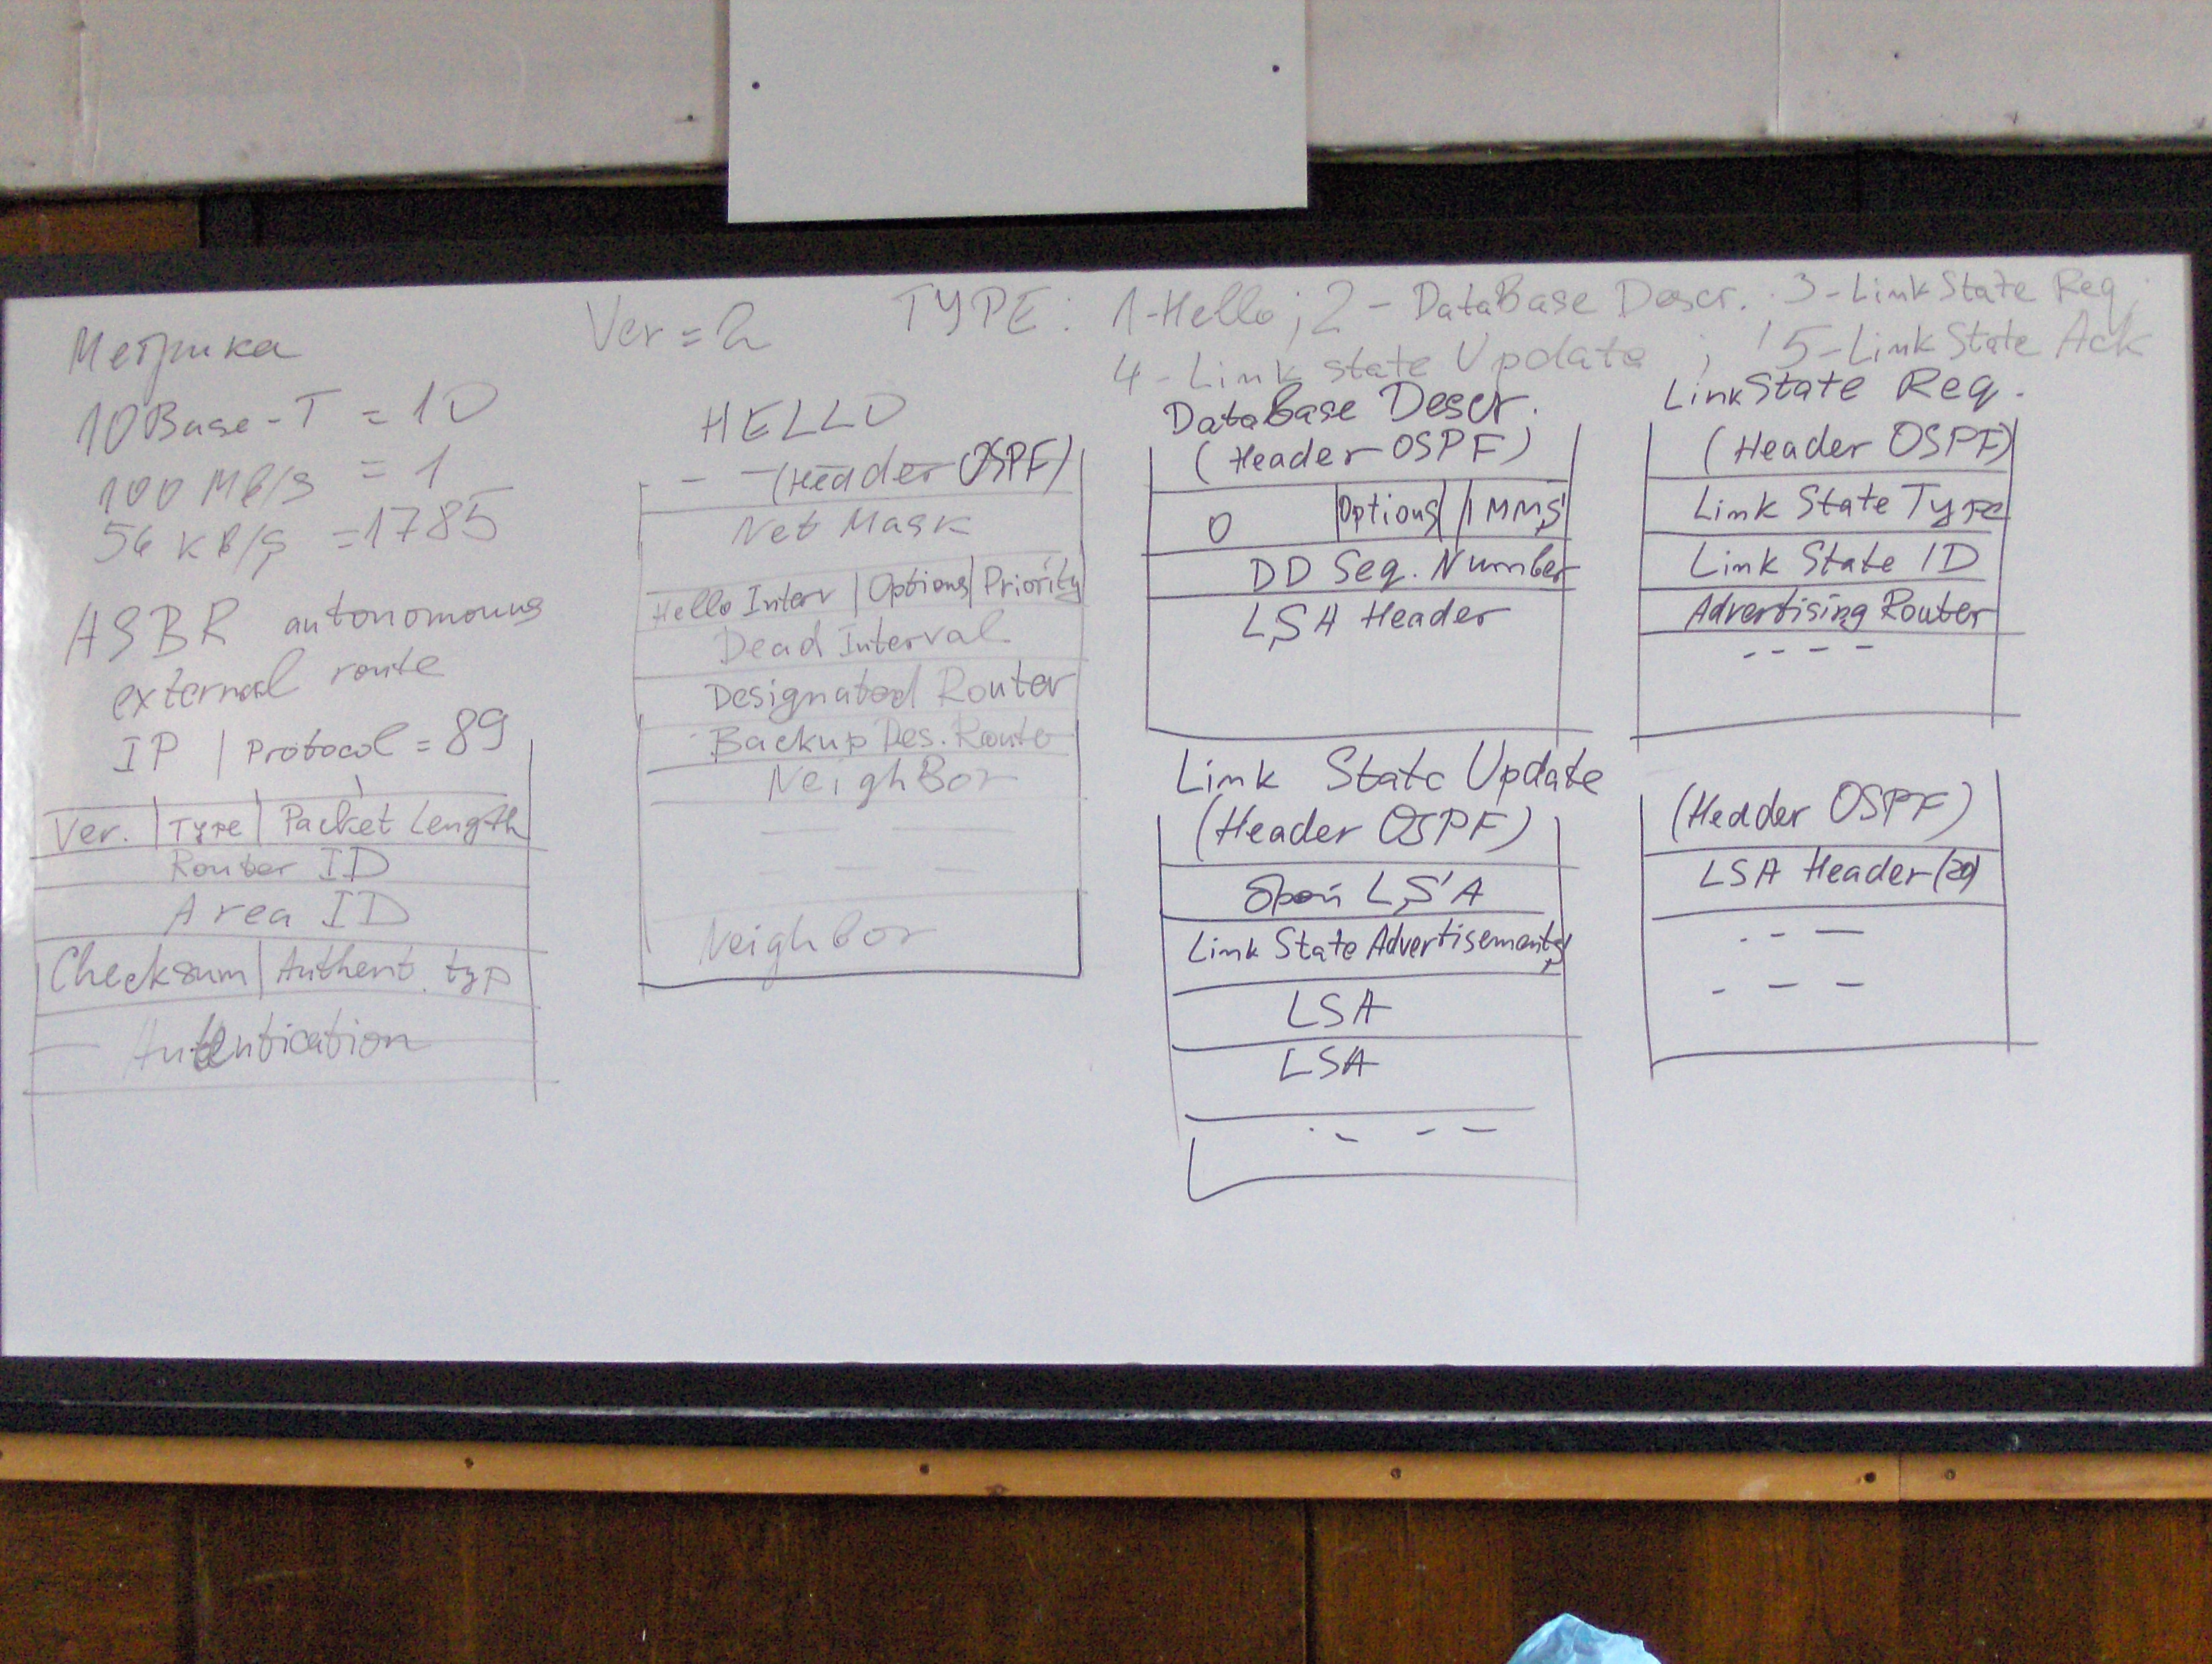 Метрика
10Base-T = 10
100 Mb/s = 1
56 kB/s = 1785
ASBR autonomous
external route
IP | Protocol = 89
Ver. | Type | Packet Length
Router ID
Area ID
Checksum | Authent. typ
Autentication
Ver = 2
TYPE: 1-Hello; 2 - DataBase Descr. 3-Link State Req;
4 - Link state Update ; 5-Link State Ack
HELLO
(Header OSPF)
Net Mask
Hello Interv | Options | Priority
Dead Interval
Designated Router
Backup Des. Route
NeighBor
Neighbor
DataBase Descr.
(Header OSPF)
0 | Options | IMMS
DD Seq. Number
LSA Header
LinkState Req.
(Header OSPF)
Link State Type
Link State ID
Advertising Router
Link State Update
(Header OSPF)
LSA
Link State Advertisements
LSA
LSA
(Header OSPF)
LSA Header (20)